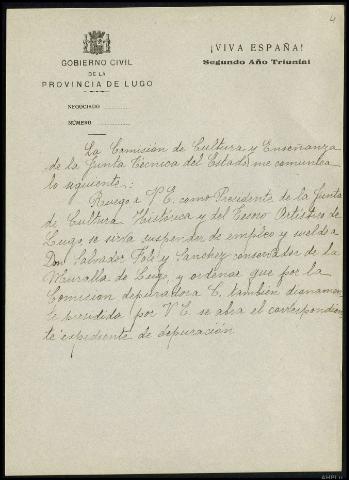 4
GOBIERNO CIVIL
DE LA
PROVINCIA DE LUGO
¡VIVA ESPAÑA!
Segundo Año Triunfal
NEGOCIADO
NÚMERO
La Comisión de Cultura y Enseñanza
de la Junta Técnica del Estado me comunica
lo siguiente:
Ruego a V.E. como Presidente de la Junta
de Cultura Histórica y del Tesoro Artístico de
Lugo, se sirva suspender de empleo y sueldo a
Don Salvador y Sánchez conservador de la
Muralla de Lugo, y ordenar que por la
Comisión depuradora C. también dignamen
te presidida por V.E. se abra el correspondien
te expediente de depuración